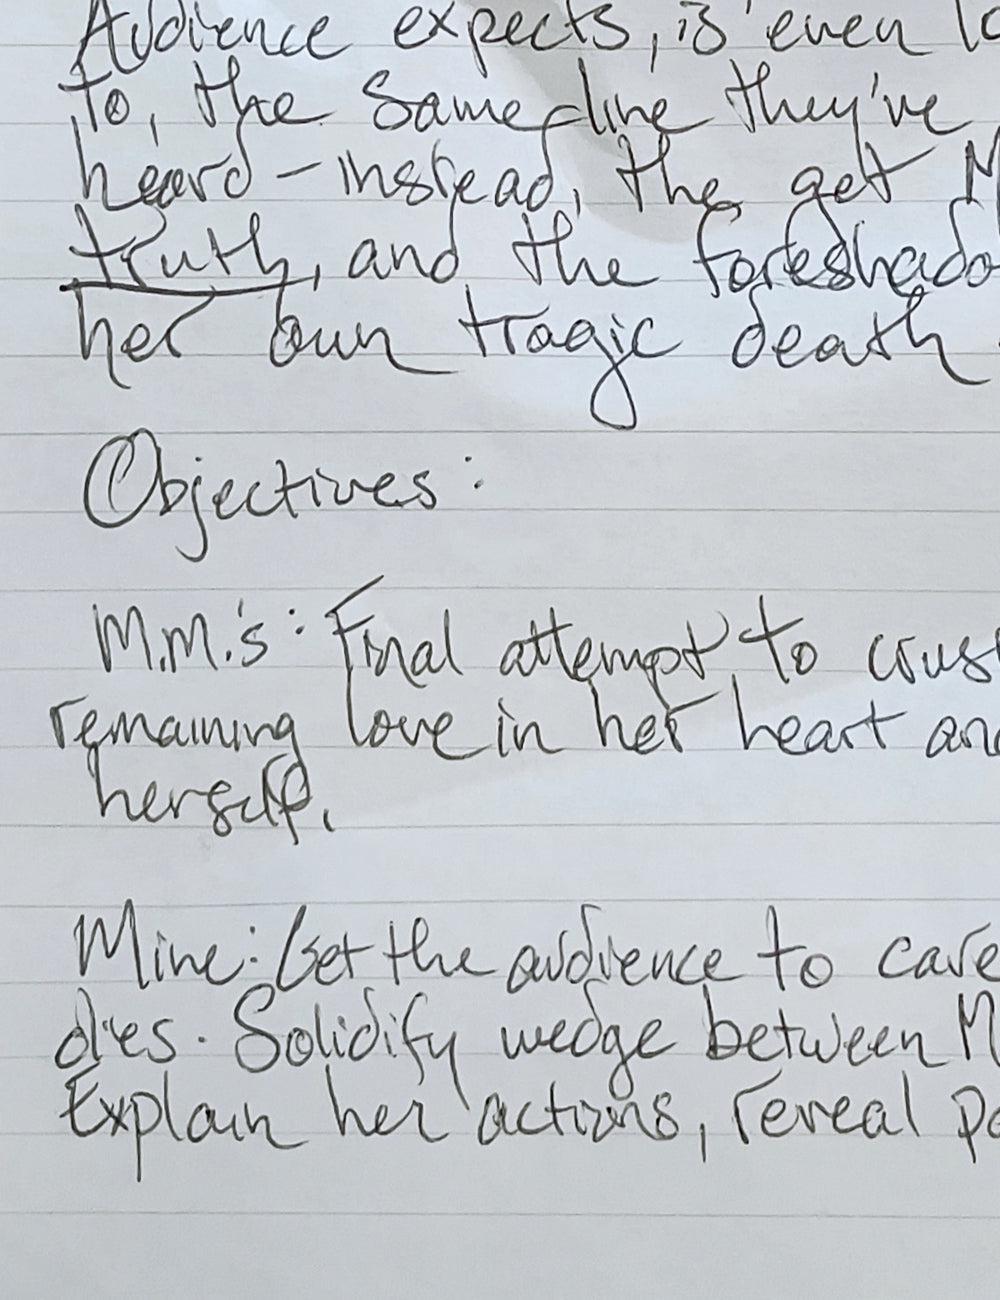 Audience expects, is even lo
to, the same line they've
heard - instead, the get M
truth, and the foreshado
her own tragic death
Objectives:
M.M.'s: Final attempt to crus
remaining love in her heart and
herself.
Mine: Get the audience to care
dies. Solidify wedge between M
Explain her actions, reveal pa